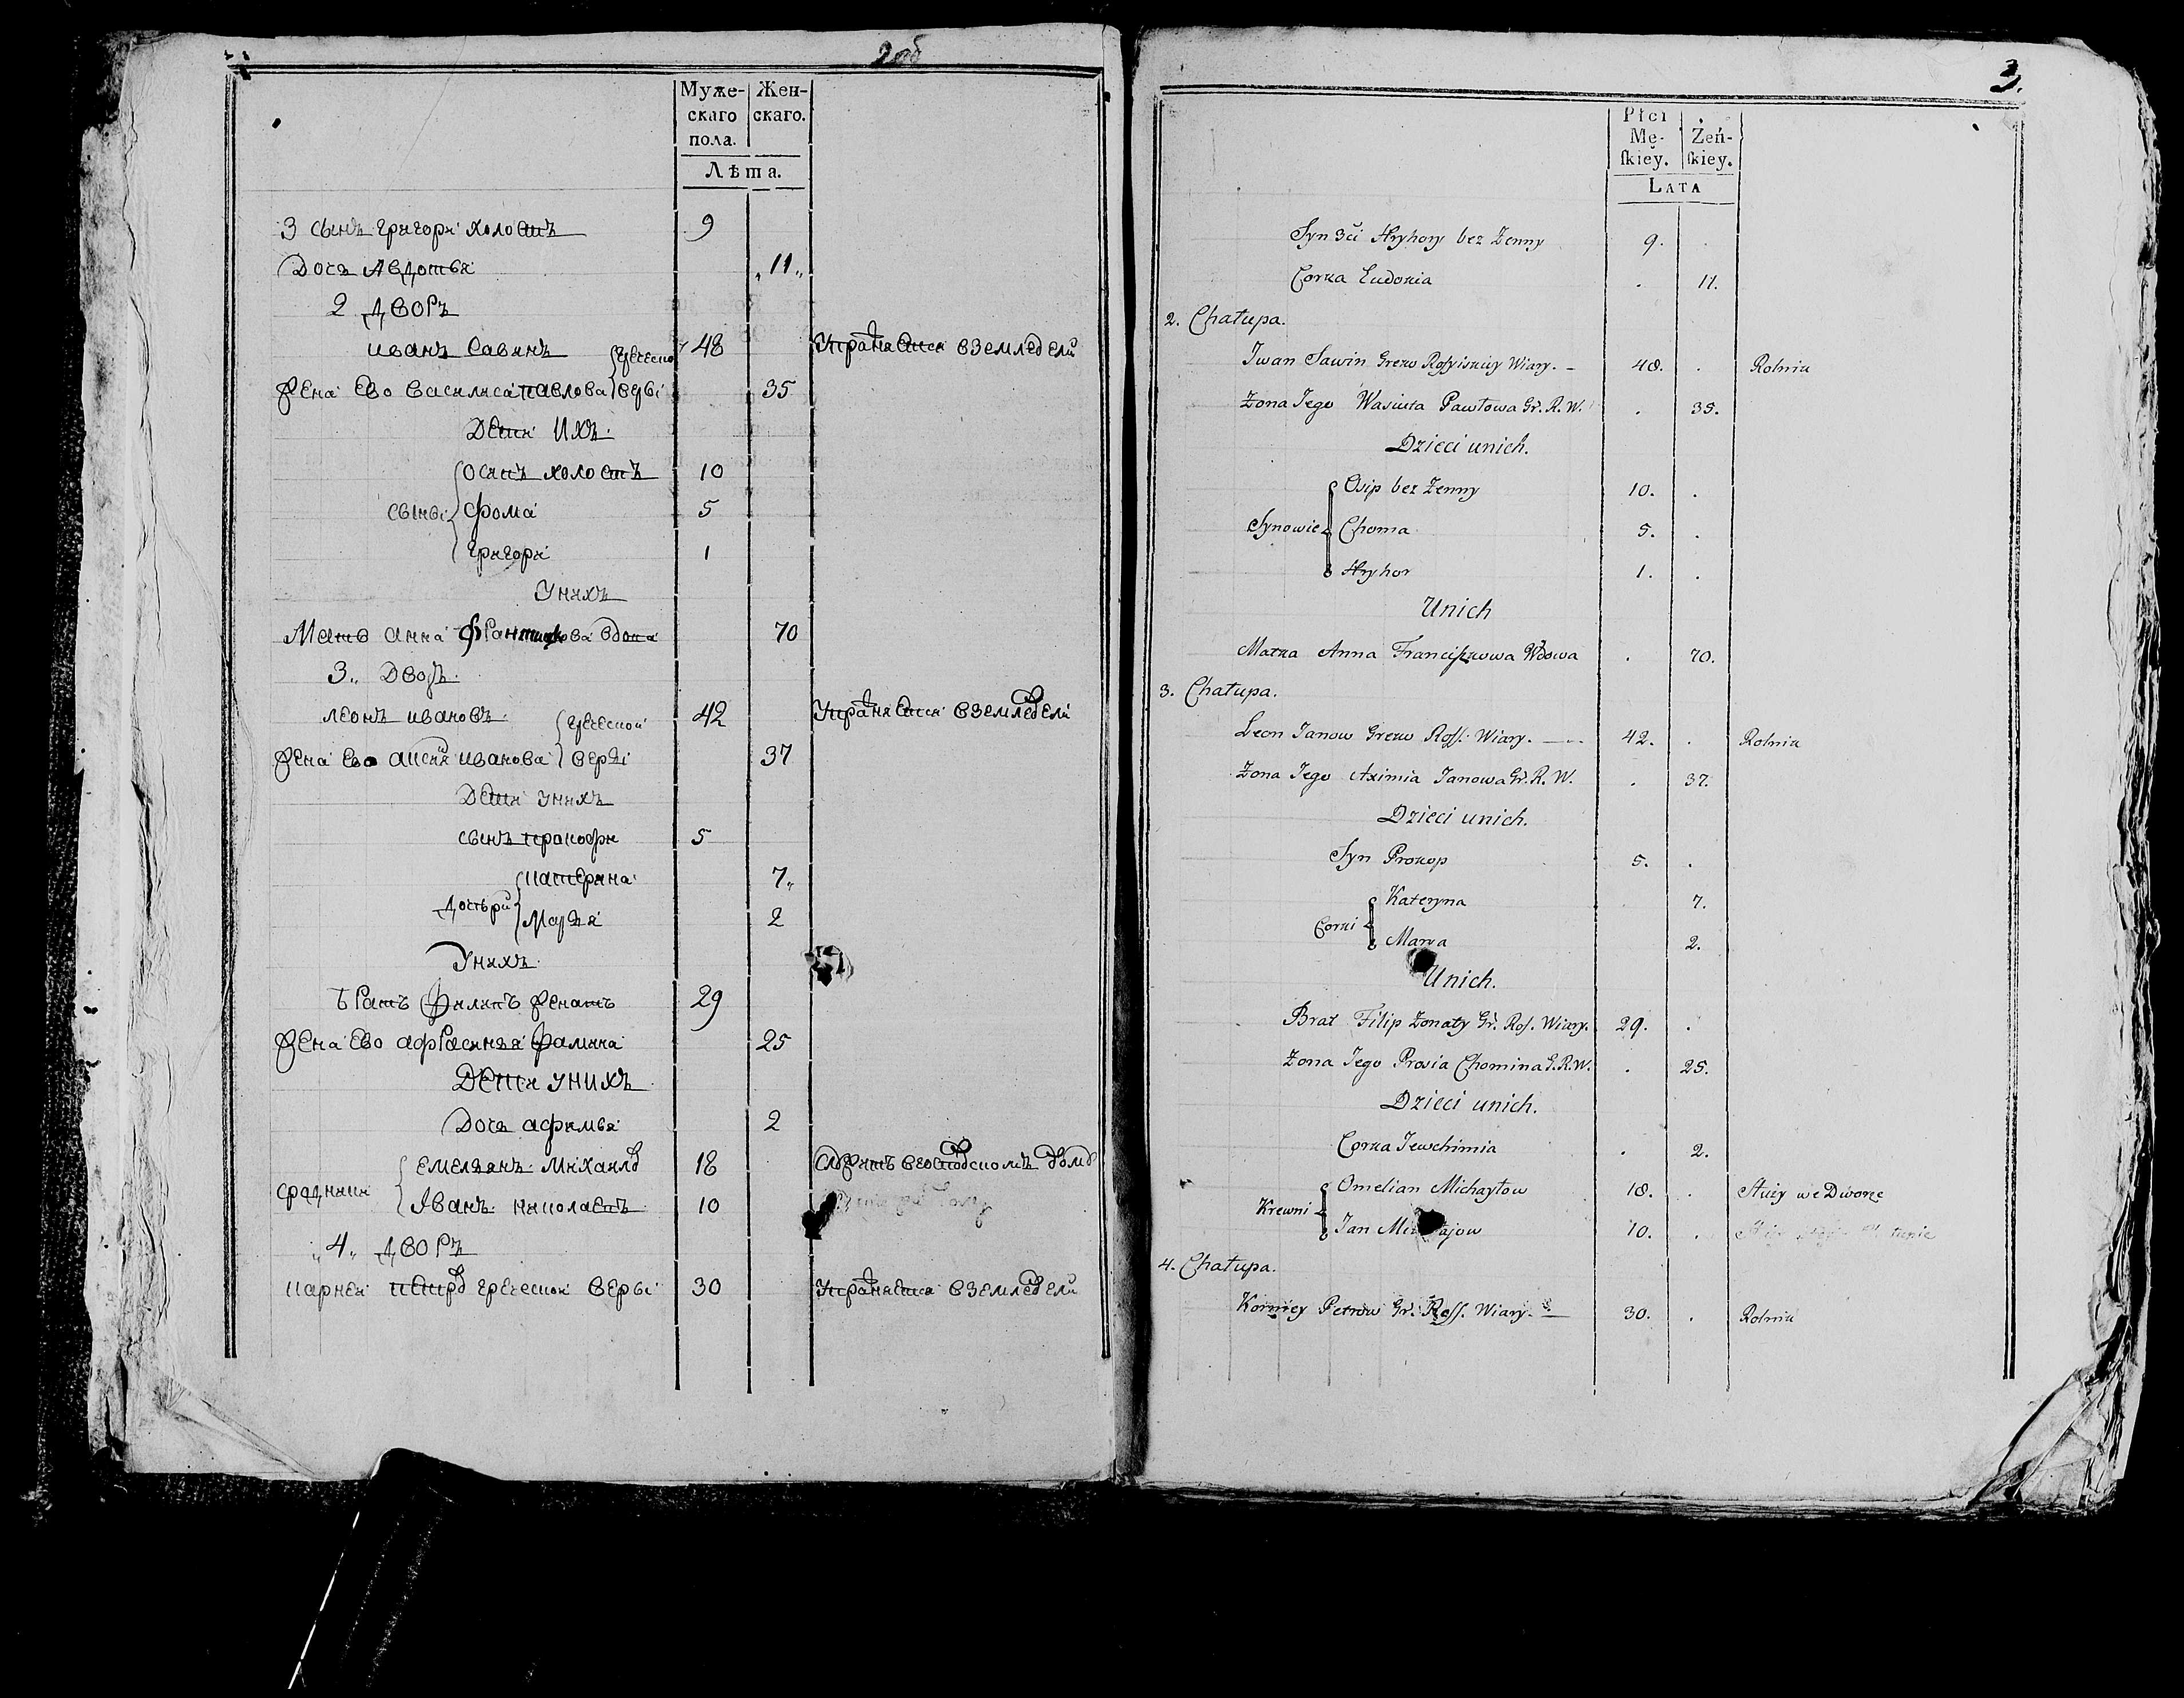 2 об
Муже-
скаго
пола.
Жен-
скаго.
Лѣта.
3 сынъ григори холостъ 9
Дочь Авдотья „11„
2 ДВОРЪ
иванъ Савинъ греческо 48 Упражняется вземледели
жена ево василиса павлова веры 35
Дети Ихъ
Осипъ холостъ 10
сыны Фома 5
григори 1
Унихъ
Мать анна вдова 70
3„ Дворъ
леонъ ивановъ греческой 42 Упражняется вземледели
жена ево аксиня иванова веры 37
Дети унихъ
сынъ пракофи 5
катерина 7„
дочери
Марья 2
Унихъ
Братъ Филипъ женатъ 29
жена ево афрасинья фамина 25
Дети унихъ
Дочь афимья 2
Емельянъ Михаилов 18 Служитъ вгосподскомъ доме
сродники
Иванъ николаевъ 10
„4„ ДВОРЪ
карней петров греческой веры 30 Упражняется вземледели
3.
Płci
Mę-
ſkiey.
Żeń-
ſkiey.
LATA
Syn 3ci Hryhory bez Żenny 9. .
Corka Eudokia . 11.
2. Chałupa.
Iwan Sawin Greko Roſsyiskiey Wiary. – 48. . Rolnik
Żona Iego Wasiuta Pawłowa Gr. R. W. . 35.
Dzieci unich.
Osip bez Żenny 10. .
Synowie Choma 5. .
Hryhor 1. .
Unich
Matka Anna Franciſzkowa Wdowa . 70.
3. Chałupa.
Leon Janow Greko Roſs. Wiary. — 42. . Rolnik
Żona Iego Aximia Janowa Gr. R. W. . 37.
Dzieci unich.
Syn Prokop 5. .
Kateryna 7.
Corki
Marya 2.
Unich.
Brat Filip Żonaty Gr. Roſ. Wiary. 29. .
Żona Iego Prosia Chomina G. R. W. . 25.
Dzieci unich.
Corka Jewchimia . 2.
Omelian Michayłow 18. . Służy we Dworze
Krewni
Jan 10. .
4. Chałupa.
Korniey Petrow Gr. Roſs. Wiary. — 30. . Rolnik